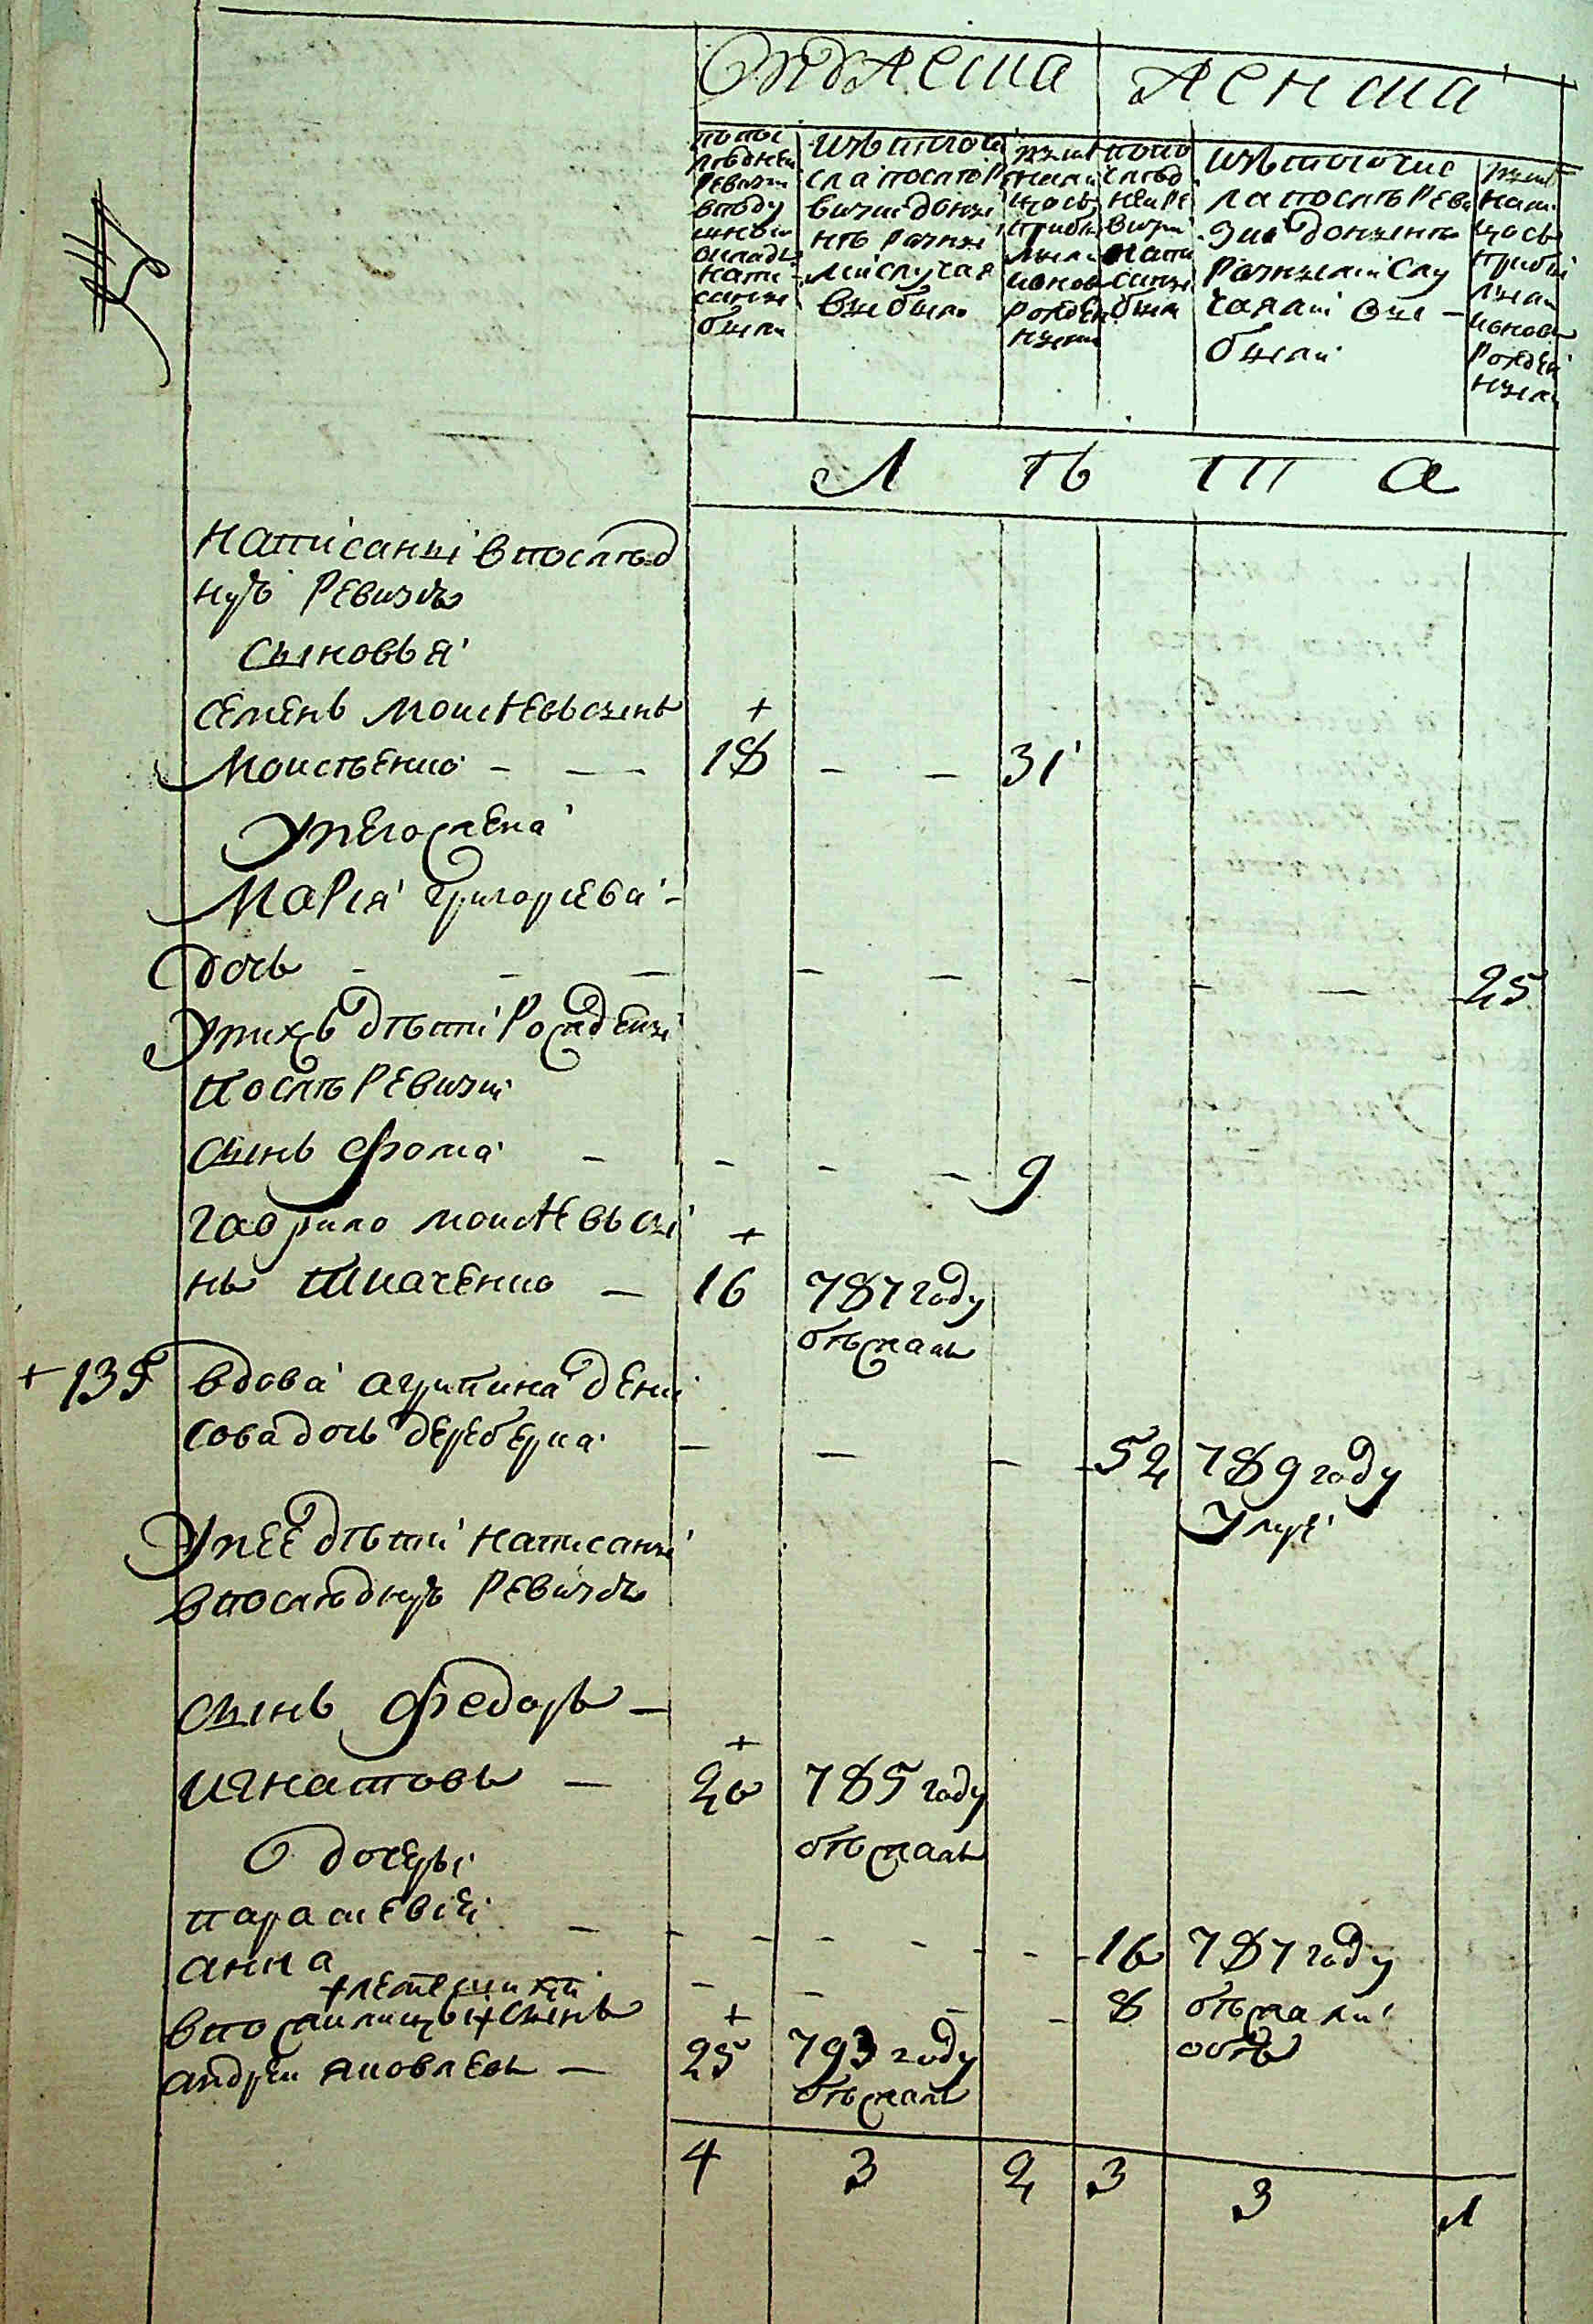 Мужеска Женска
по пос
ледней
ревизи
в поду
шном
окладе
напи
саны
были
изъ того чи
сла после ре
визии до ны
не разны
ми случая
выбыло
ныне
нали
цось
прибы
лыми
и ново
рожден
ными
по по
след
ней ре
визи
напи
саны
были
изъ того чис
ла после реви
зии до ныне
разными слу
чаями вы
были
ныне
нали
цось
прибы
лыми
и ново
рожден
ными
Л Ѣ Т А
написаны в послѣд
нуъ ревизъ
сыновья
семенъ моисѣевъ сынъ
Моисѣенко 18 31
У него жена
Марія григориева
дочь 25
У них дѣти рожденны
послѣ ревизіи
сынъ фома 9
гаврило моисѣевъ сы
нъ ткаченко 16 787 году
бѣжалъ
+ 135 вдова агрипина дени
сова дочь дереберка 52 789 году
умре
У нее дѣти написаны
в послѣднуъ ревизъ
сынъ федоръ
игнатовъ 20 785 году
бѣжалъ
дочери
парасковия 16 787 году
анна 8 бѣжали
обѣ
андрей яковлевъ 25 793 году
бѣжалъ
4 3 2 3 3 1